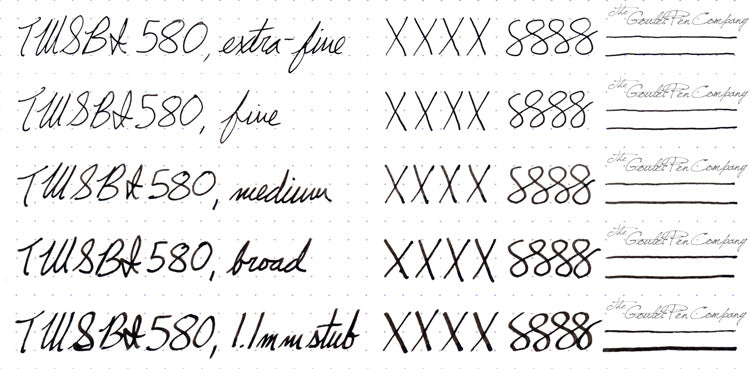 TWSBI 580, extra-fine XXXX 8888 The Goulet Pen Company
TWSBI 580, fine XXXX 8888 The Goulet Pen Company
TWSBI 580, medium XXXX 8888 The Goulet Pen Company
TWSBI 580, broad XXXX 8888 The Goulet Pen Company
TWSBI 580, 1.1mm stub XXXX 8888 The Goulet Pen Company